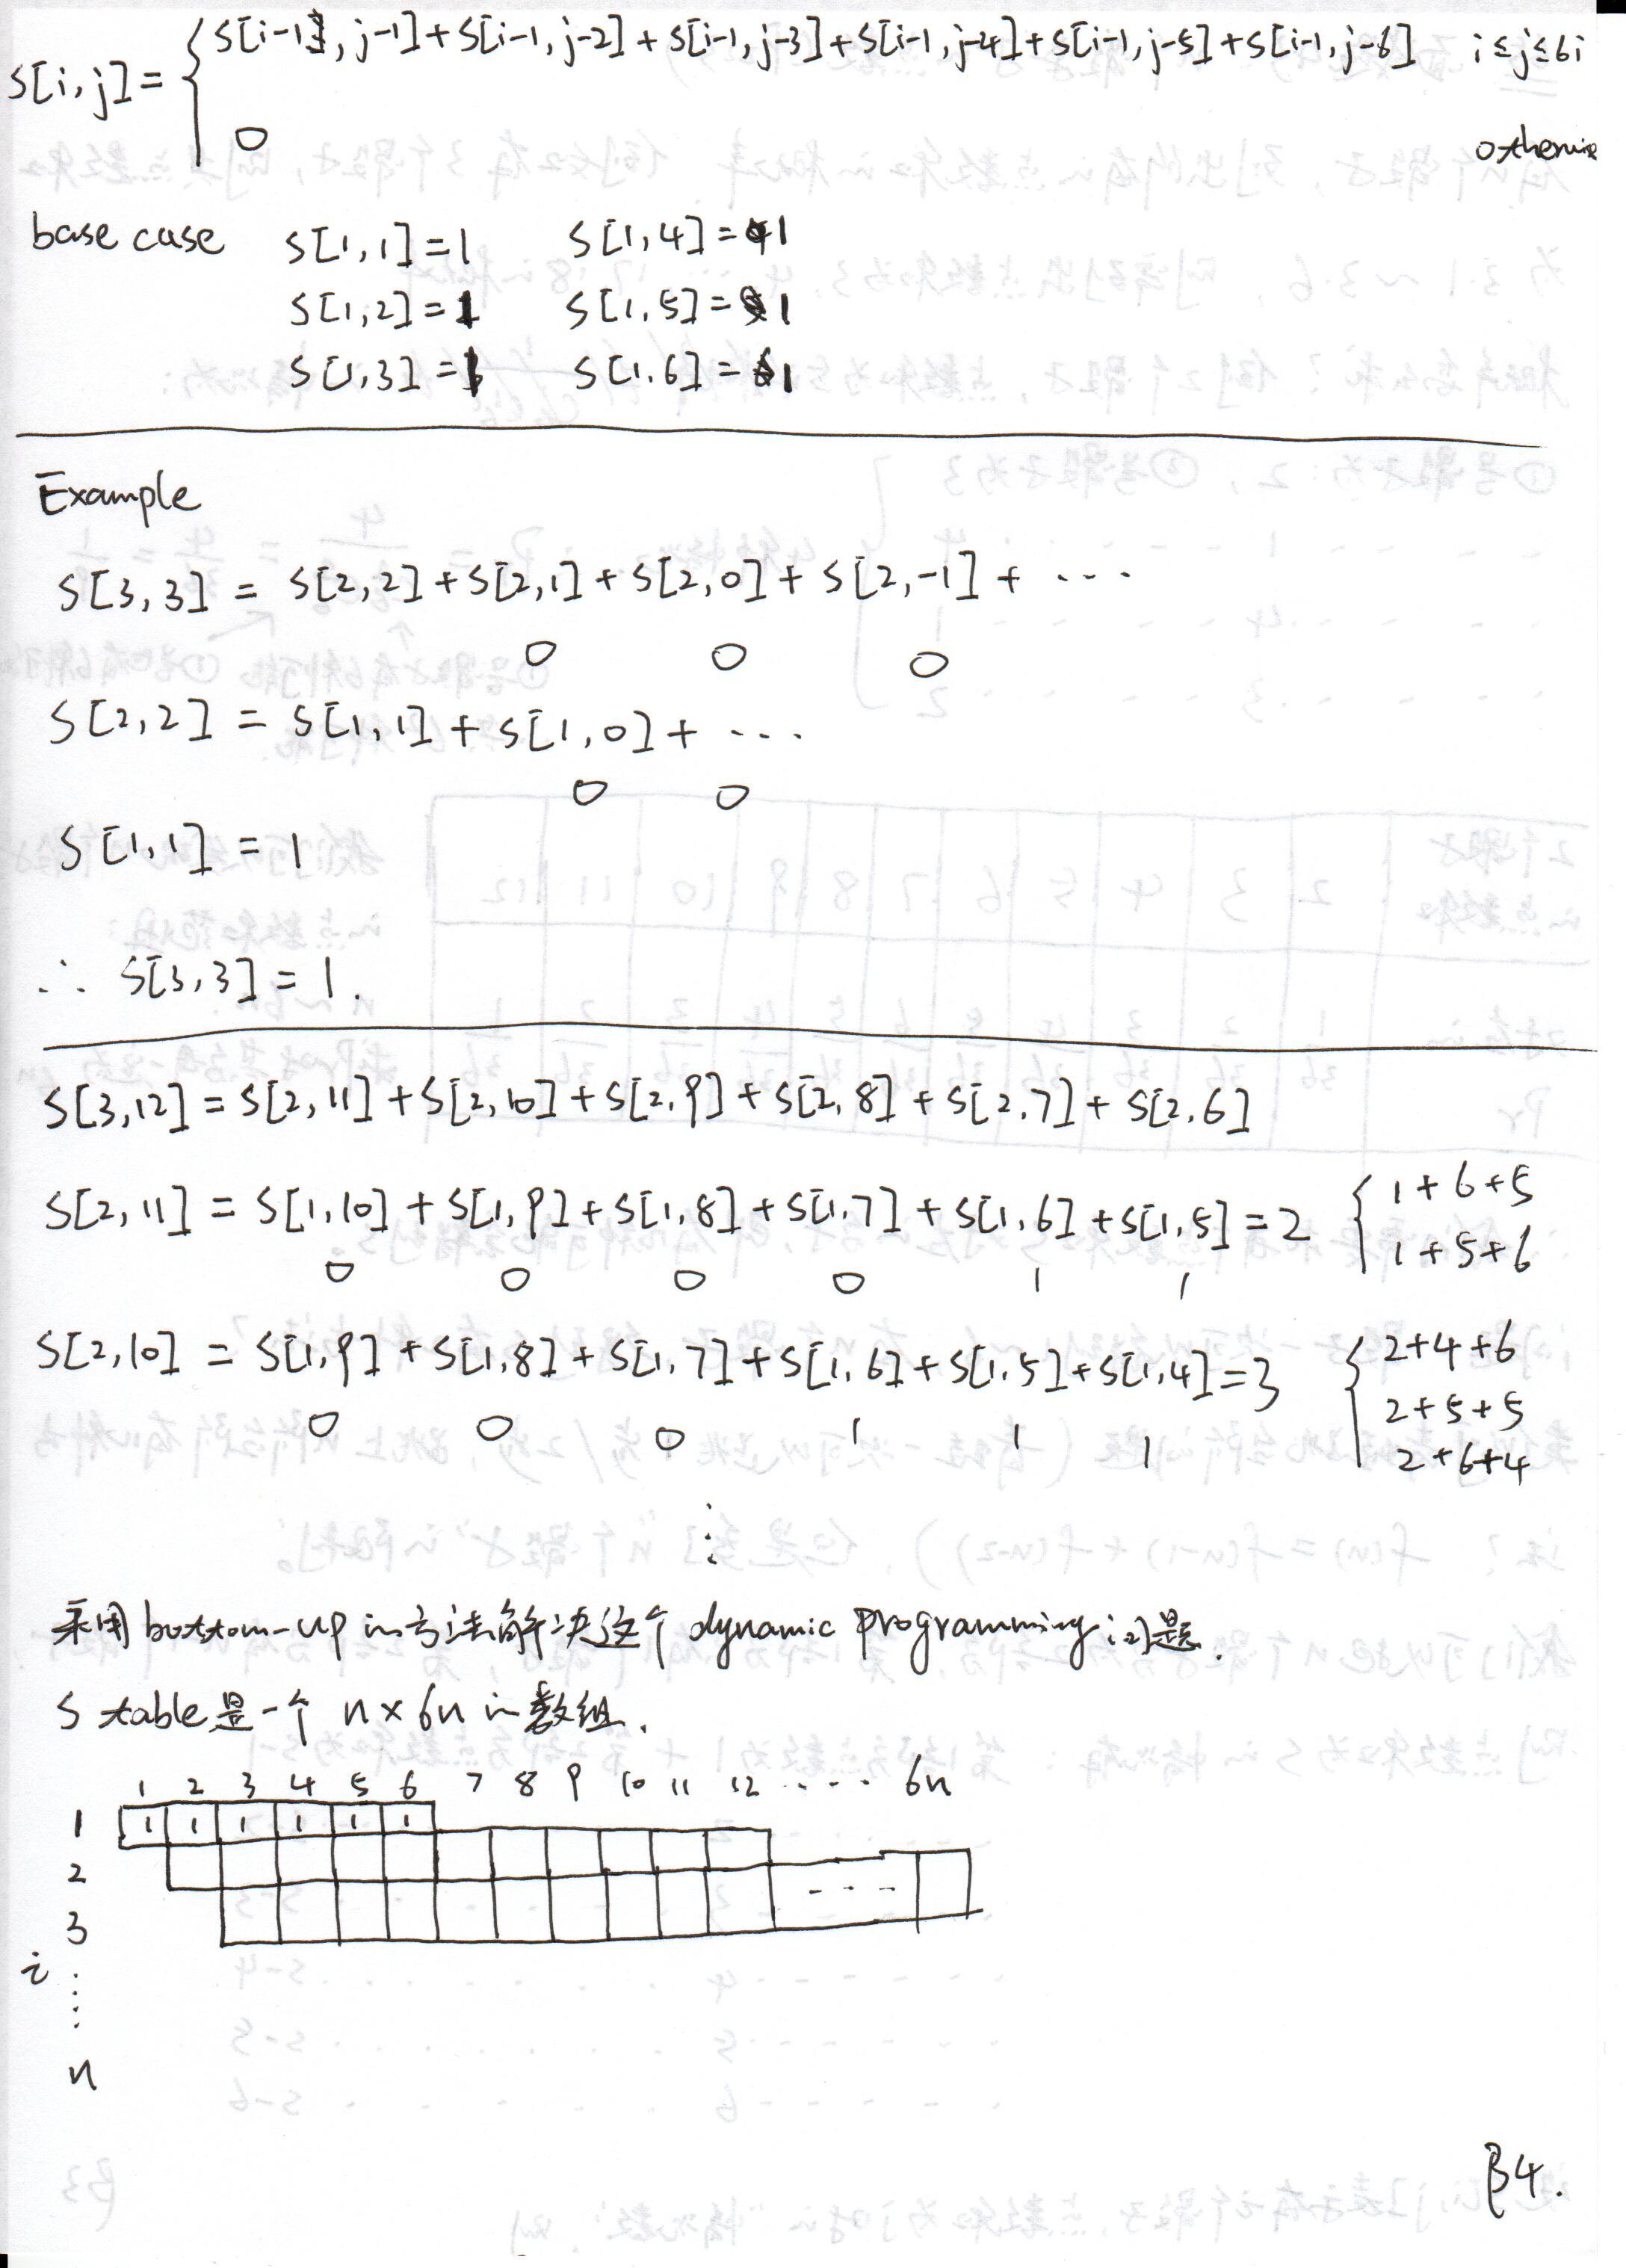 S[i,j] = { S[i-1, j-1] + S[i-1, j-2] + S[i-1, j-3] + S[i-1, j-4] + S[i-1, j-5] + S[i-1, j-6]   i ≤ j ≤ 6i
0   otherwise
base case   S[1,1] = 1   S[1,4] = 1
S[1,2] = 1   S[1,5] = 1
S[1,3] = 1   S[1,6] = 1
Example
S[3,3] = S[2,2] + S[2,1] + S[2,0] + S[2,-1] + ...
0   0   0
S[2,2] = S[1,1] + S[1,0] + ...
0   0
S[1,1] = 1
∴ S[3,3] = 1.
S[3,12] = S[2,11] + S[2,10] + S[2,9] + S[2,8] + S[2,7] + S[2,6]
S[2,11] = S[1,10] + S[1,9] + S[1,8] + S[1,7] + S[1,6] + S[1,5] = 2 { 1+6+5
1+5+6
0   0   0   0   1   1
S[2,10] = S[1,9] + S[1,8] + S[1,7] + S[1,6] + S[1,5] + S[1,4] = 3 { 2+4+6
2+5+5
2+6+4
0   0   0   1   1   1
⋮
采用 bottom-up 的方法解决这个 dynamic programming 问题.
S table 是一个 n × 6n 的数组.
1 2 3 4 5 6 7 8 9 10 11 12 .... 6n
1 1 1 1 1 1 1
2
3 ---
i ⋮
n
β4.